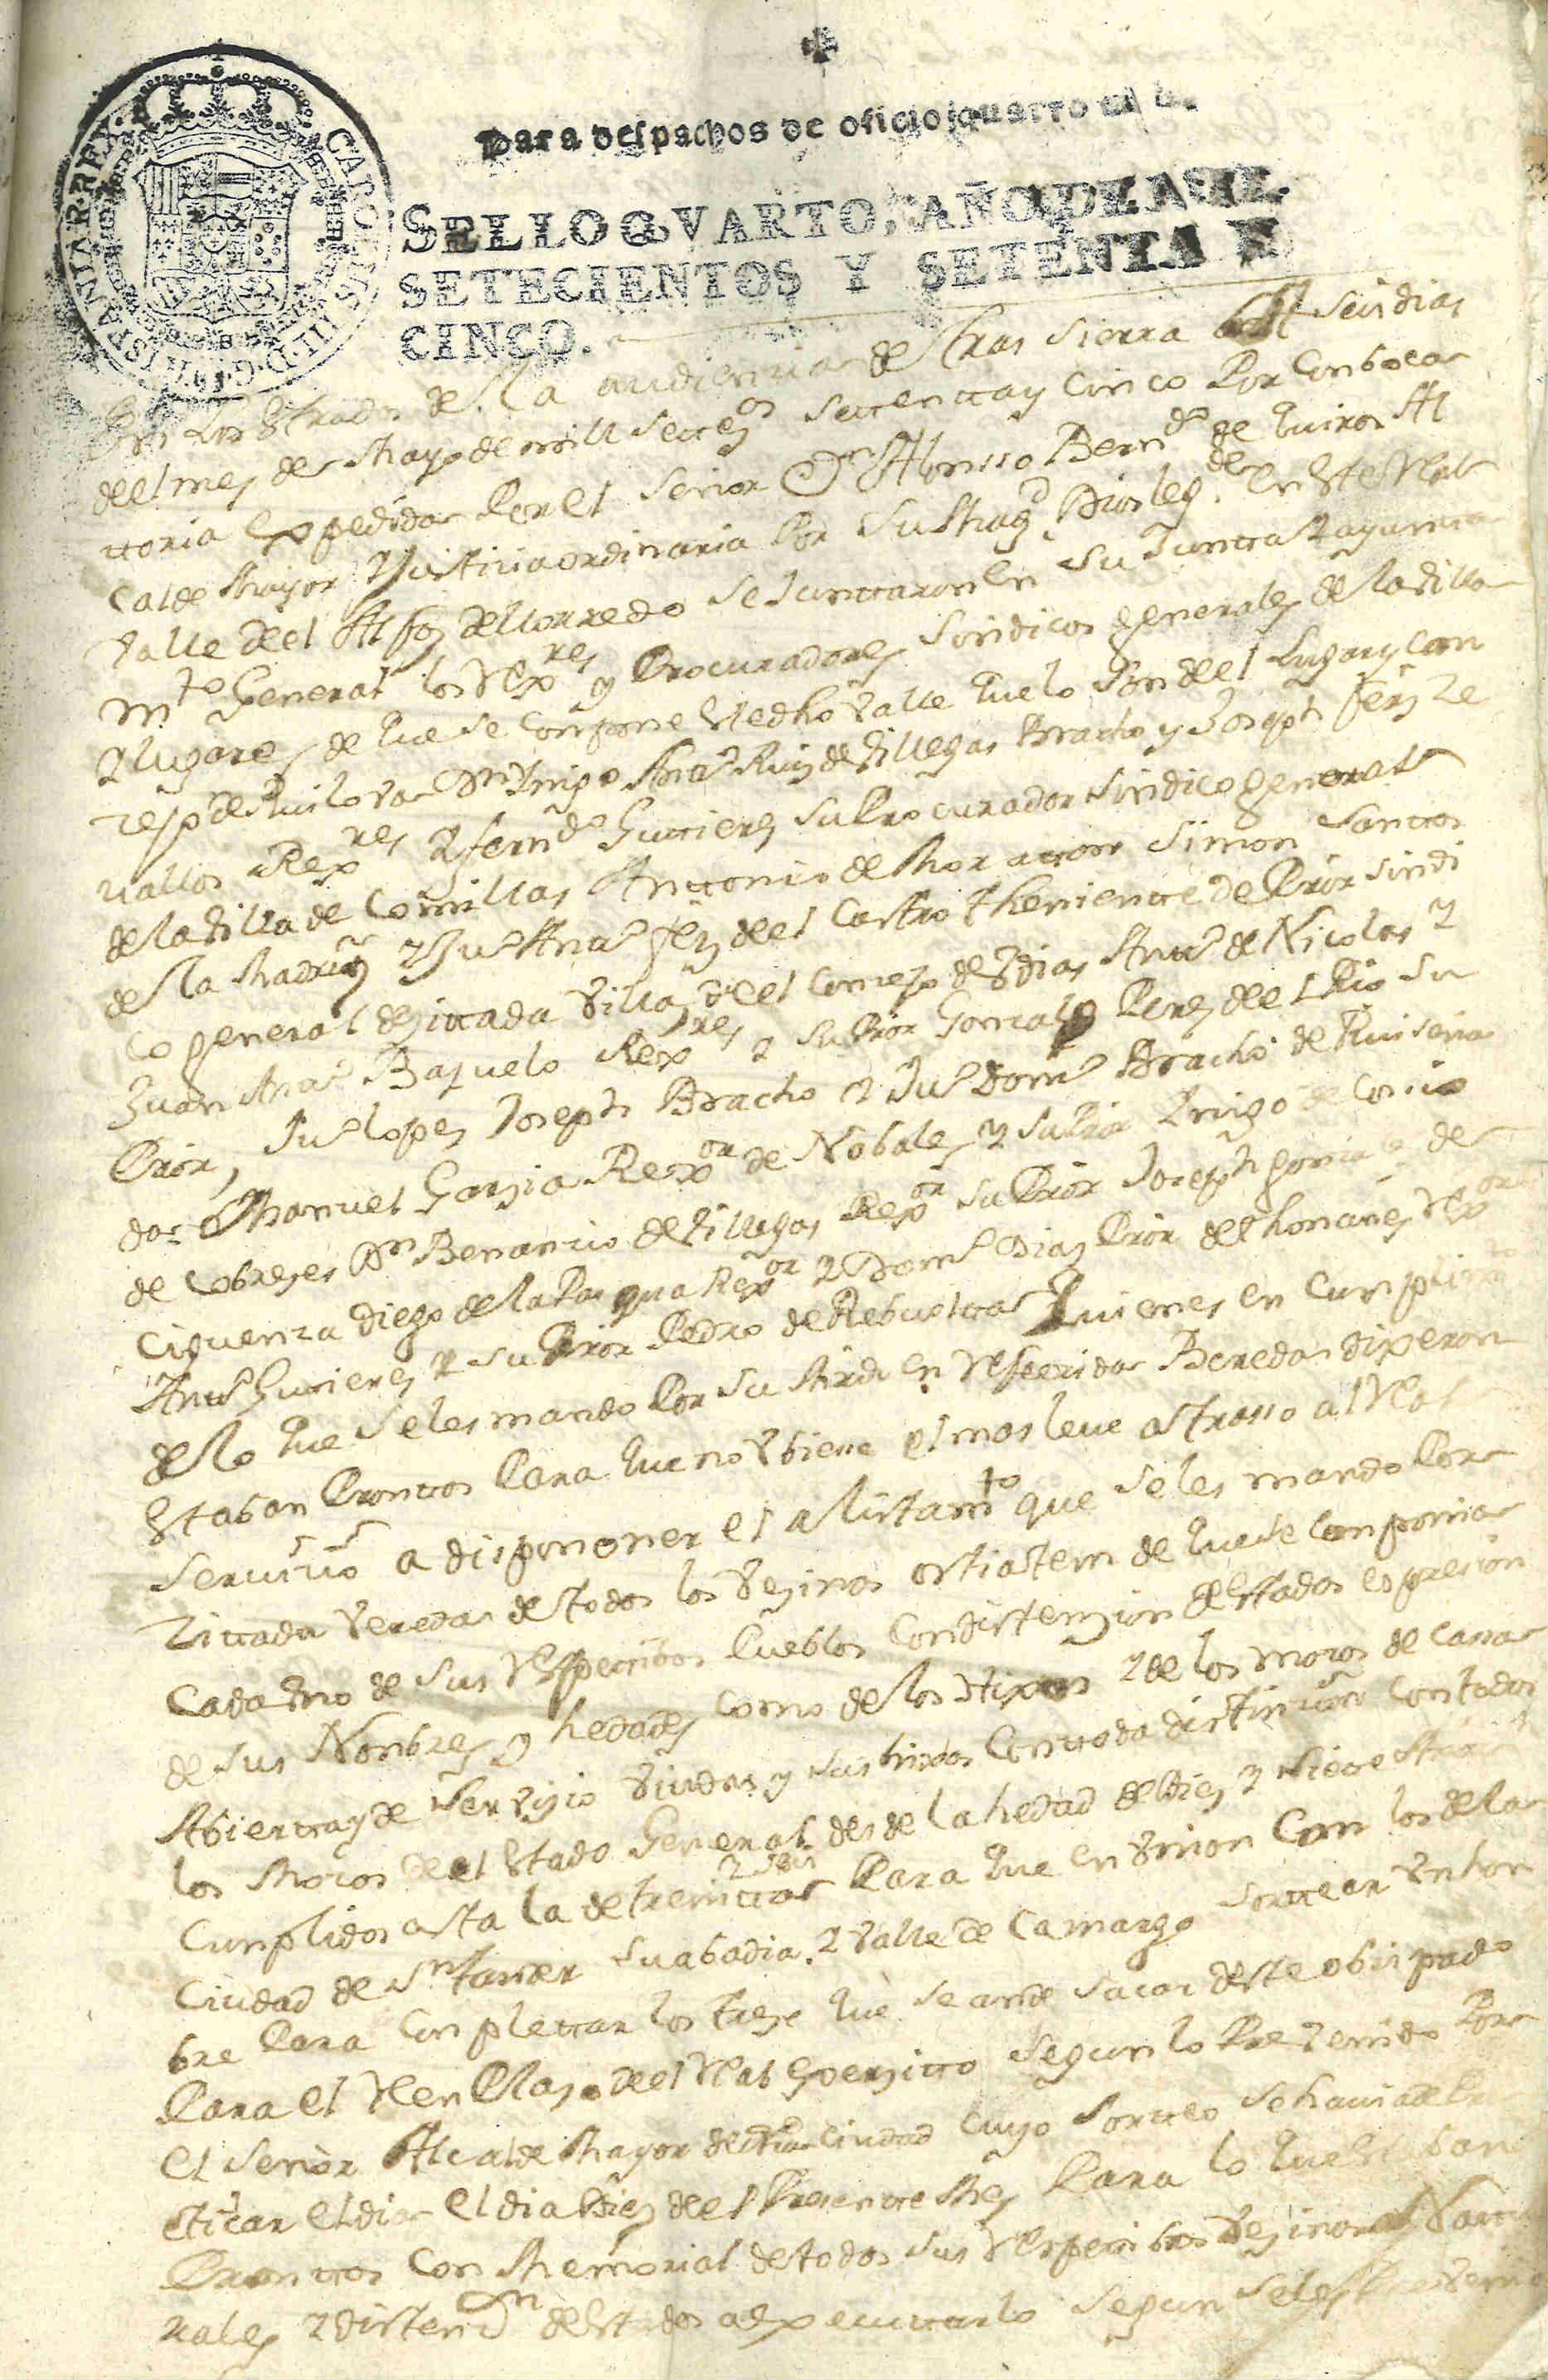 Para despachos de oficio quatro
SELLO QVARTO, AÑO DE MIL
SETECIENTOS Y SETENTA Y
CINCO.
CAROLUS III D G HISPANIAR REX
En los Estrados de la audienzia de tras sierra a seis dias
de el mes de Mayo de mill settezos settentta y Cinco Por Conboca
ttoria Expedida Por el Señor Dn Alonsso Berndo de Quiros Al
calde Mayor y Justicia ordinaria Por Su Magd Dios le gde en Este Real
Valle de el Alfoz de llorredo se Junttaron en su Juntta y ayuntta
mto General los Rexres y Procuradores Sindicos generales de la Villa
y lugares de que se Conpone Estedho valle que lo son del lugar y Con
zejo de Ruilova Dn Ynigo Anto Ruiz de Villegas Bracho y Joseph Ferz Ze
vallos Rexres y ferndo Gutierez su Procurador Sindico general
de la Villa de Comillas Anttonio de Mor Simon Santtos
de la Madriz y Jun Anto frz de el Castro theniente de Pror sindi
co general de zittada Villa, de el Conzejo de Udias Anto de Nicolas y
Juan Anto Bazuelo Rexres y su Pror Gonzalo Perez de el Rio su
Pror, Jun lopez Joseph Bracho y Jun Domo Bracho de Ruiseña
da Manuel Garzia Rexor de Nobales y su Pror Ynigo de Cos
de Cobrezes Dn Benancio de Villegas Rexor su Pror Joseph gonzalez de
Ciguenza Diego de la Pasqua Rexor y Domo Diaz Pror de thonanes Rexor
Anto Gutierez y su Pror Pedro de Rebuoltta Quienes en Cunplimto
de lo que se les mando Por su Mrd en referida Bereda dixeron
Estaban Pronttos Para que no Ubiese el mas leve attrasso al Real
servicio a disponer el alistamto que se les mando Por
zittada vereda de todos los Vezinos de que se Conponia
Cada Uno de sus Respectibos Pueblos Con distenzion de Estados espresion
de sus Nonbres y hedades como de los Hixos y de los mozos de Cassa
Abierta y de servizio Viudas y sus hixos Con ttoda distincion con todos
los Mozos de el Estado General desde la hedad de Diez y siete Años
Cunplidos asta la de treintta y seis Para que en Union Con los de la
Ciudad de Sn tander su abadia y Valle de Camargo sortear Un hon
bre Para Conplettar los treze que se ande sacar deste obispado
Para el Ren Plazo de el Real Exerzitto segun lo Prevenido Por
el Señor Alcalde Mayor de dha Ciudad Cuyo sorteo se havia de Pra
cticar el dia el dia Diez de el Presentte Mes Para lo que Estaban
Pronttos Con Memorial de todos sus Respectibos Vezinos y Natu
rales y distenzn de Estados a expecuttarlo segun se les Preveni